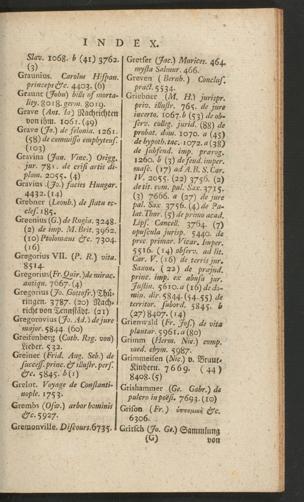 INDEX.
Slav. 1068. b (41) 3762.
(3)
Graunius. Carolus Hispan.
princeps &c. 4403. (6)
Graunt (John) bills of morta-
lity. 8018. germ. 8019.
Grave (Ant. le) Nachrichten
von ihm. 1061. (49)
Grave (Jo.) de felonia. 1261.
(58) de commisso emphyteut.
(103)
Gravina (Jan. Vinc.) Origg.
jur. 781. de crisi artis di-
plom. 2055. (4)
Gravius (Jo.) fastes Hungar.
4432. (14)
Grebner (Leonh.) de statu ec-
cles. 185.
Greenius (G.) de Rogia. 3248.
(2) de imp. M. Brit. 3962.
(10) Ptolomæus &c. 7304.
(16)
Gregorius VII. (P. R.) vita.
8514.
Gregorius (Fr. Quir.) de mirac.
antiqu. 7067. (4)
Gregorius (Jo. Gottofr.) Thü-
ringen. 3787. (20) Nach-
richt von Tennstädt. (21)
Gregorovius (Jo. Ad.) de jure
major. 5844 (60)
Greifenberg (Cath. Reg. von)
Lieder. 532.
Greiner (Frid. Aug. Seb.) de
success. princ. & illustr. pers.
&c. 5845. b (1)
Grelot. Voyage de Constanti-
nople. 1753.
Grembs (Osw.) arbor hominis
&c. 5927.
Gremonville. Discours. 6735.
Gretser (Jac.) Murices. 464.
mysta Salmur. 466.
Greven (Bernh.) Conclus.
pract. 5534.
Griebner (M. H.) jurispr.
priv. illustr. 765. de jure
incerto. 1067. b (53) de ob-
serv. colleg. jurid. (88) de
probat. dom. 1070. a (45)
de hypoth. tac. 1072. a (38)
de subfeud. imp. prærog.
1260. b (3) de feud. imper.
masc. (17) ad A. B. S. Car.
IV. 2055. (22) 3756. (2)
de tit. com. pal. Sax. 3715.
(3) 7666. a (27) de jure
pal. Sax. 3756. (4) de Pa-
lat. Thur. (5) de primo acad.
Lips. Cancell. 3764. (7)
opuscula jurisp. 5440. de
prec. primar. Vicar. Imper.
5516. (14) observ. ad lit.
Car. V. (16) de terris jur.
Saxon. (22) de præjud.
princ. imp. ex abusu jur.
Justin. 5610. a (16) de do-
min. dir. 5844. (54. 55) de
territor. subord. 5845. b
(27) 8407. (14)
Grienwald (Fr. Jos.) de vita
plantar. 5961. a (80)
Grimm (Herm. Nic.) comp.
med. chym. 5987.
Grimmeisen (Nic.) v. Braut-
Kindern. 7669. (44)
8408. (5)
Grishammer (Ge. Gabr.) de
pulcro in poësi. 7693. (10)
Grison (Fr.) &c.
6306.
Gritsch (Jo. Ge.) Sammlung
(G) von